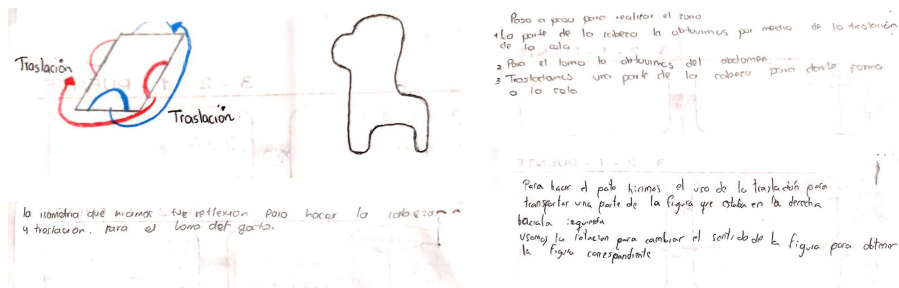 Traslación
Traslación
la isometria que hicimos fue reflexion para hacer la cabeza
y traslación. para el lomo del gato.
Paso a paso para realizar el zorro
1 La parte de la cabeza la obtuvimos por medio de la traslación
de la cola
2 Para el lomo lo obtuvimos del abdomen
3 Trasladamos una parte de la cabeza para darle forma
a la cola.
Para hacer el pato hicimos el uso de la traslación para
transportar una parte de la figura que estaba en la derecha
hacia la izquierda
Usamos la rotacion para cambiar el sentido de la figura para obtener
la figura correspondiente